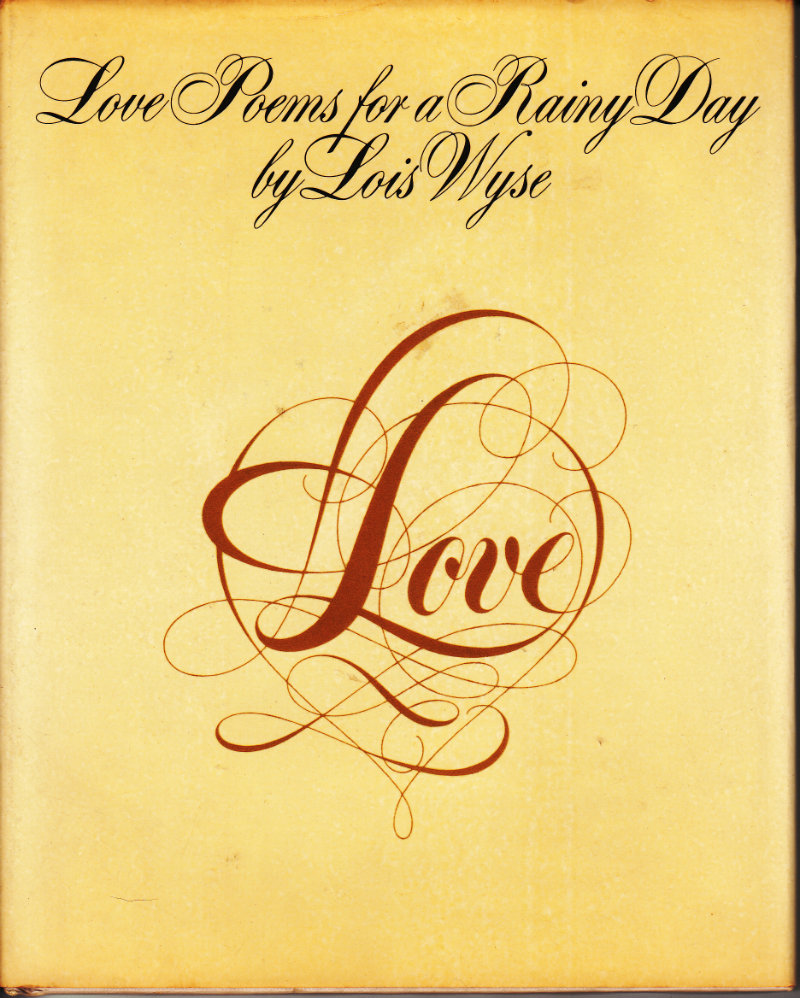 Love Poems for a Rainy Day
by Lois Wyse
Love